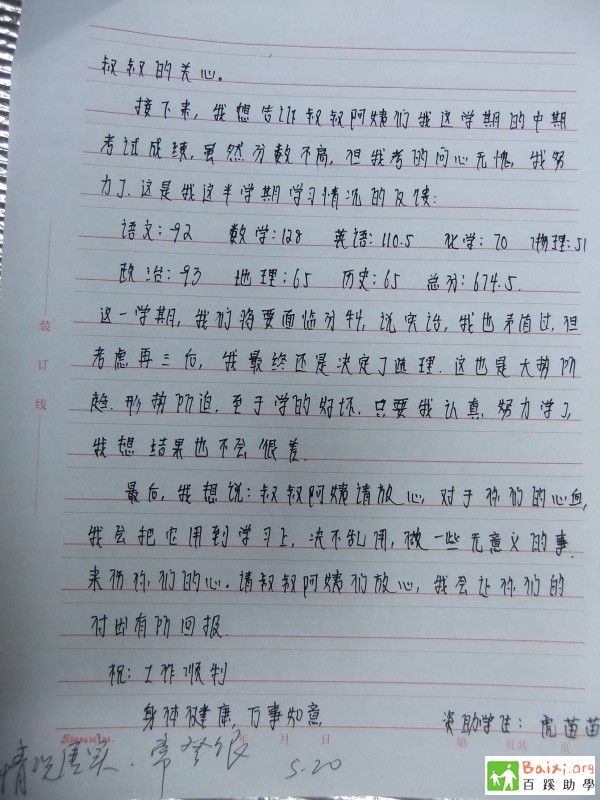 叔叔的关心。
接下来,我想告诉叔叔阿姨们我这学期的中期
考试成绩,虽然分数不高,但我考的问心无愧,我努
力了.这是我这半学期学习情况的反馈:
语文:92 数学:128 英语:110.5 化学:70 物理:51
政治:93 地理:65 历史:65 总分:674.5.
这一学期,我们将要面临分科,说实话,我也矛盾过,但
考虑再三后,我最终还是决定了选理.这也是大势所
趋.形势所迫.至于学的好坏.只要我认真,努力学了,
我想结果也不会很差.
最后,我想说:叔叔阿姨请放心,对于你们的心血,
我会把它用到学习上,决不乱用,做一些无意义的事.
来伤你们的心.请叔叔阿姨们放心,我会让你们的
付出有所回报.
祝:工作顺利
身体健康,万事如意,
资助学生:虎苗苗
年 月 日 第 页共 页
情况属实.常 5.20
装订线
Baixi.org
百蹊助學